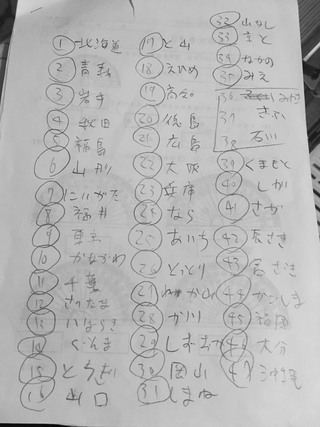 ① 北海道
② 青森
③ 岩手
④ 秋田
⑤ 福島
⑥ 山形
⑦ にいがた
⑧ 福井
⑨ 東京
⑩ かながわ
⑪ 千葉
⑫ さいたま
⑬ いばらき
⑭ ぐんま
⑮ とちぎ
⑯ 山口
⑰ と山
⑱ えひめ
⑲ 高知
⑳ 徳島
㉑ 広島
㉒ 大阪
㉓ 兵庫
㉔ なら
㉕ あいち
㉖ とっとり
㉗ わか山
㉘ か川
㉙ しずおか
㉚ 岡山
㉛ しまね
㉜ 山なし
㉝ きと
㉞ ながの
㉟ みえ
36 みやぎ
37 ぎふ
38 石川
㊴ くまもと
㊵ しが
㊶ さが
㊷ 長さき
㊸ 宮ざき
㊹ かごしま
㊺ 福岡
㊻ 大分
㊼ 沖縄